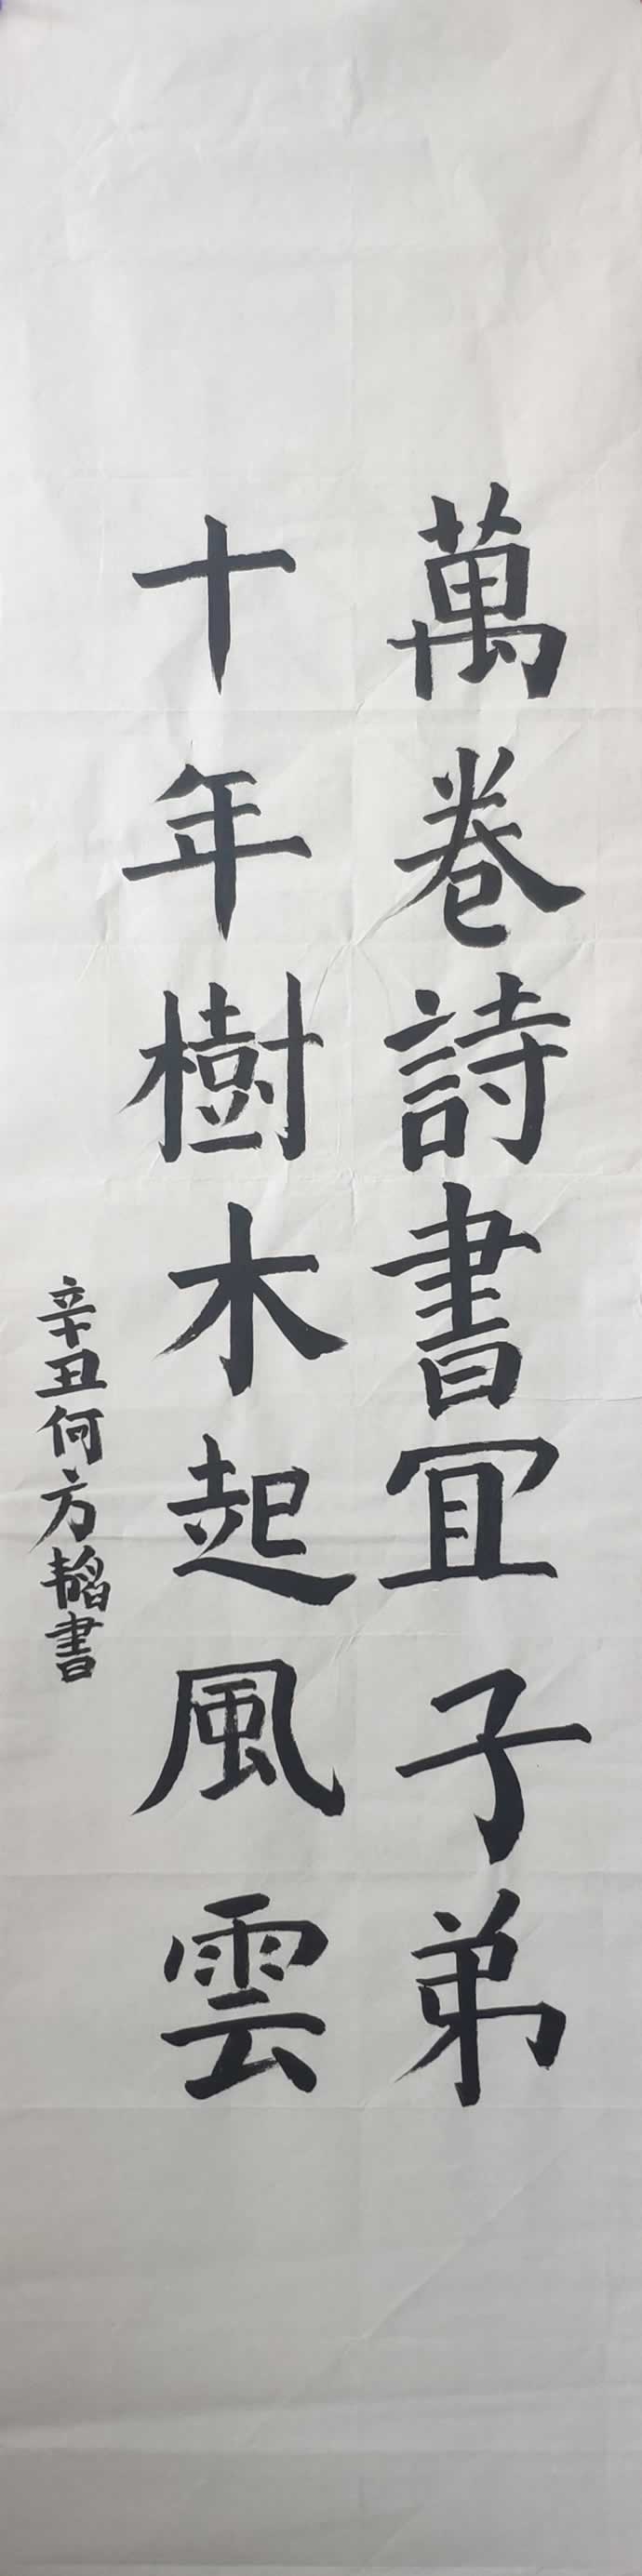 萬卷詩書宜子弟
十年樹木起風雲
辛丑何方韜書